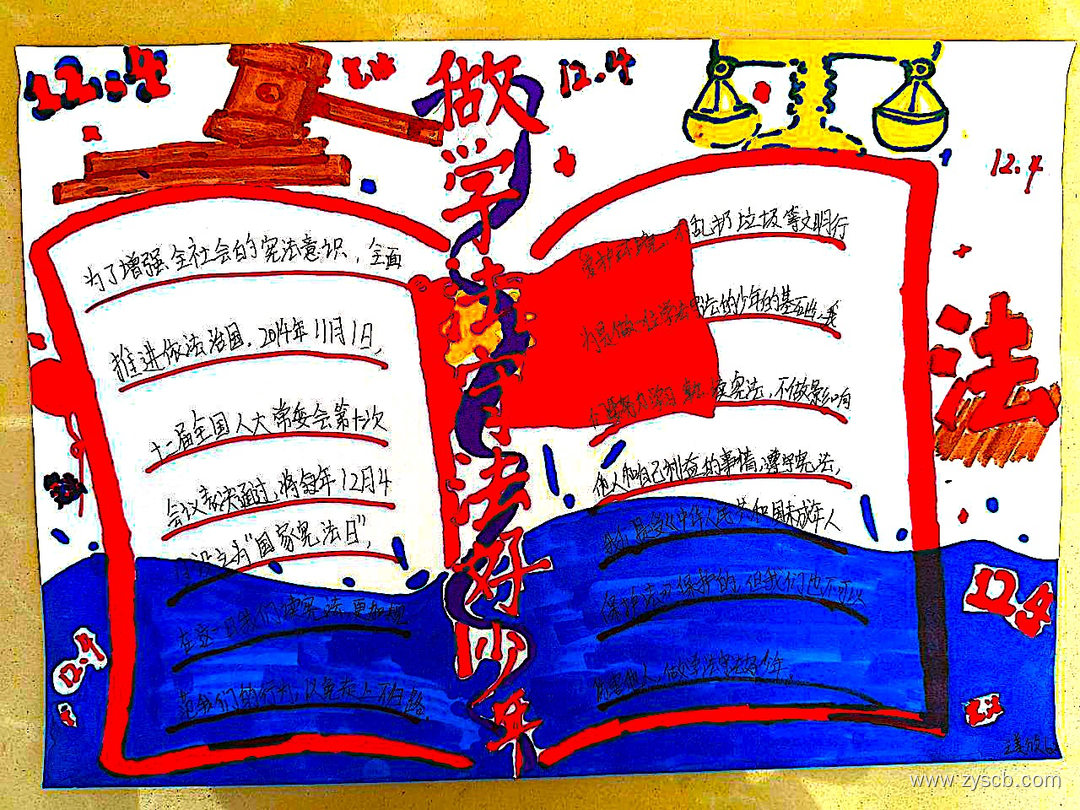 12.4
做学法守法好少年
12.4
12.4
为了增强全社会的宪法意识，全面
推进依法治国。2014年11月1日，
十一届全国人大常委会第十次
会议表决通过，将每年12月4
日设立为"国家宪法日"，
在这一日我们读宪法更加规
范我们的行为，以免走上不归路。
爱护环境，不乱扔垃圾等文明行
为是做一位学法守法的少年的基础，我
们要努力学习，熟读宪法，不做影响
他人和自己利益的事情，遵守宪法，
我们虽受《中华人民共和国未成年人
保护法》保护的，但我们也不可以
他人，做学法守法好少年。
法
12.4
12.4
www.zyscb.com